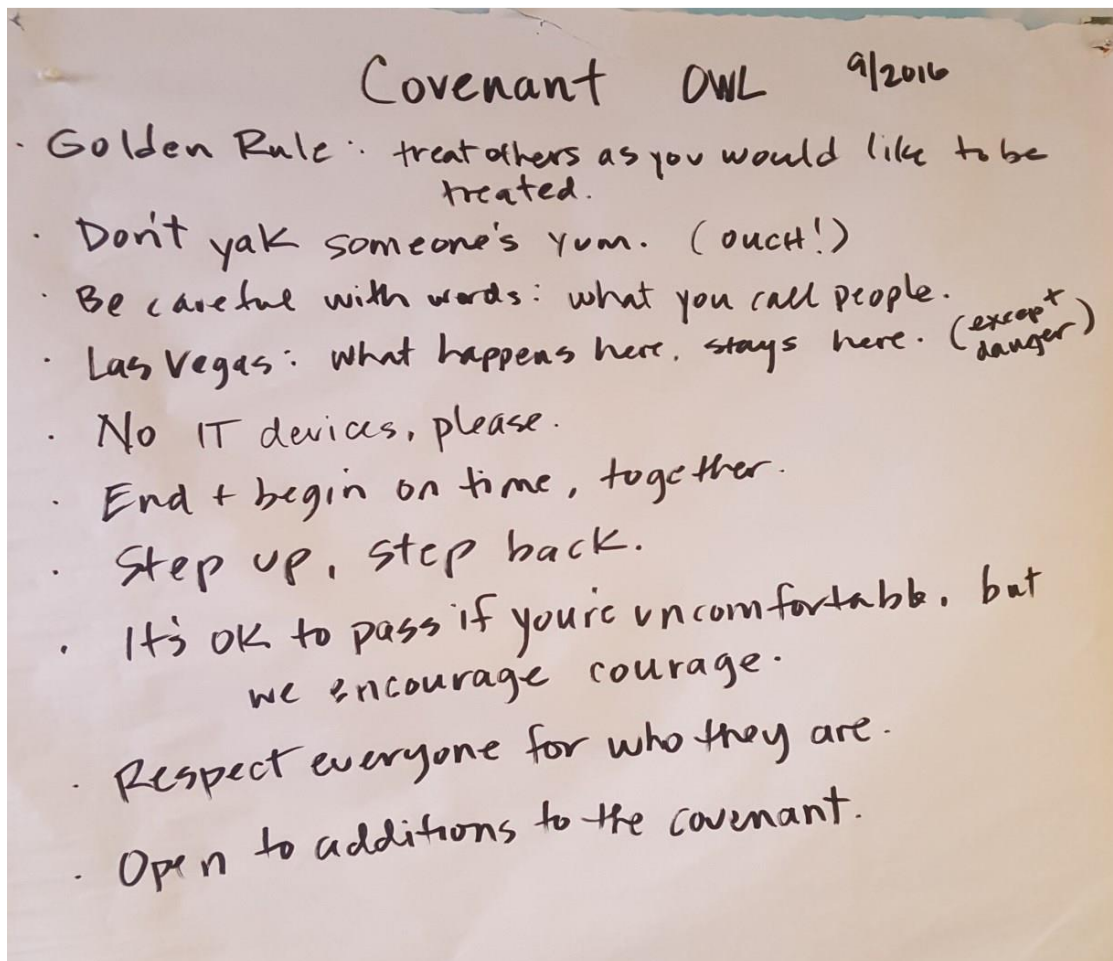 Covenant OWL 9/2016
· Golden Rule: treat others as you would like to be
treated.
· Don't yak someone's yum. (OUCH!)
· Be careful with words: what you call people.
· Las Vegas: what happens here, stays here. (except
danger)
· No IT devices, please.
· End + begin on time, together.
· Step up, step back.
· It's OK to pass if you're uncomfortable, but
we encourage courage.
· Respect everyone for who they are.
· Open to additions to the covenant.